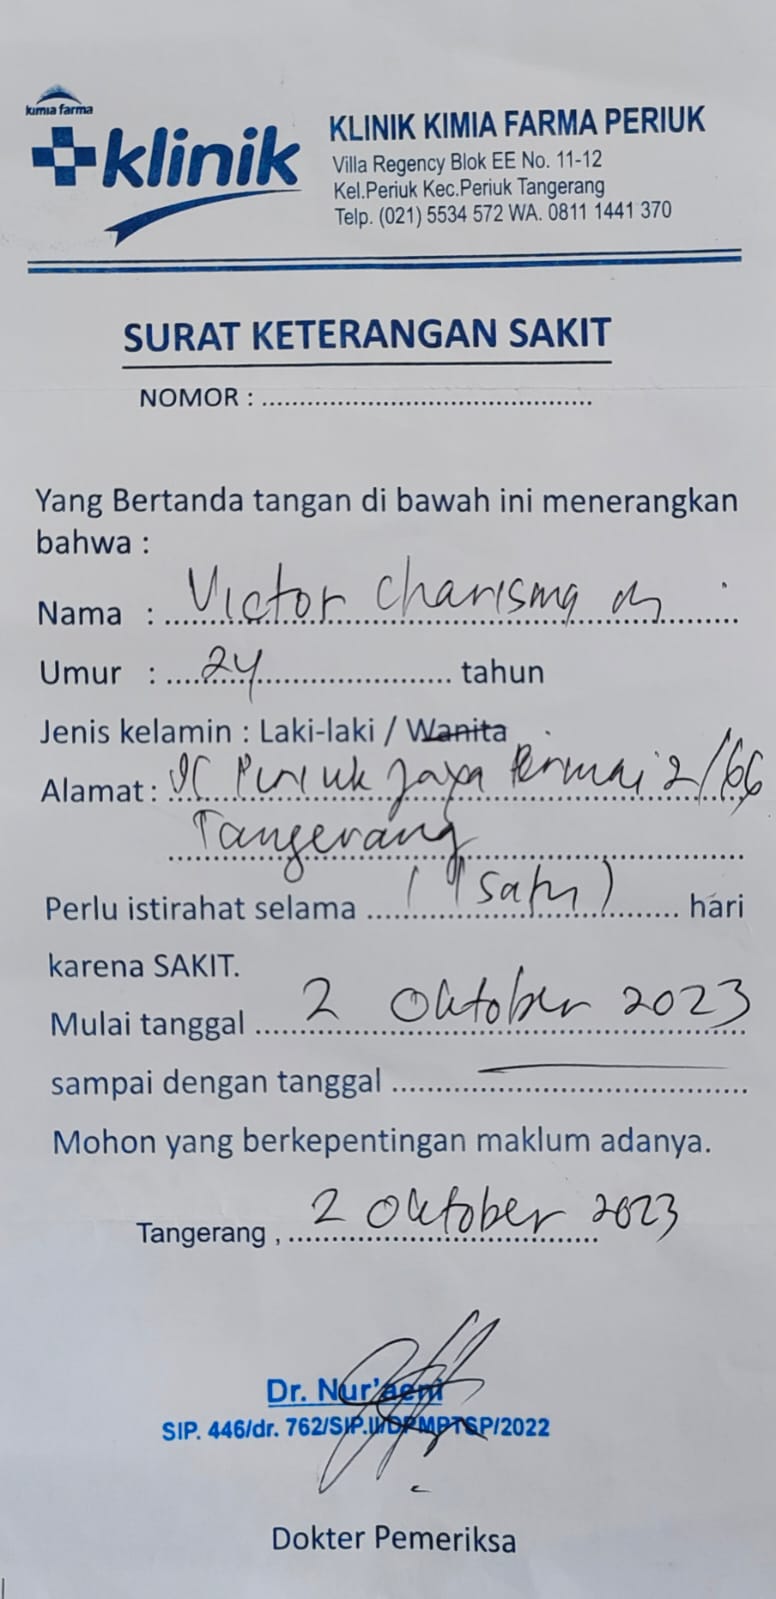 kimia farma
klinik
KLINIK KIMIA FARMA PERIUK
Villa Regency Blok EE No. 11-12
Kel.Periuk Kec.Periuk Tangerang
Telp. (021) 5534 572 WA. 0811 1441 370
SURAT KETERANGAN SAKIT
NOMOR : ............................................
Yang Bertanda tangan di bawah ini menerangkan
bahwa :
Nama : Victor Charisma
Umur : 24 tahun
Jenis kelamin : Laki-laki / Wanita
Alamat : Periuk Jaya Permai 2/66
Tangerang
Perlu istirahat selama (1 satu) hari
karena SAKIT.
Mulai tanggal 2 Oktober 2023
sampai dengan tanggal ............................................
Mohon yang berkepentingan maklum adanya.
Tangerang , 2 Oktober 2023
Dr. Nur'aeni
SIP. 446/dr. 762/SIP.II/DPMPTSP/2022
Dokter Pemeriksa